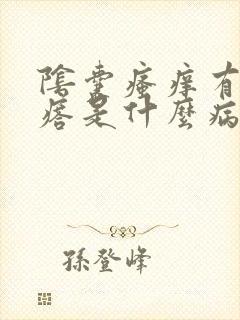 陰囊瘙癢有
痞是什麼病
孫登峰